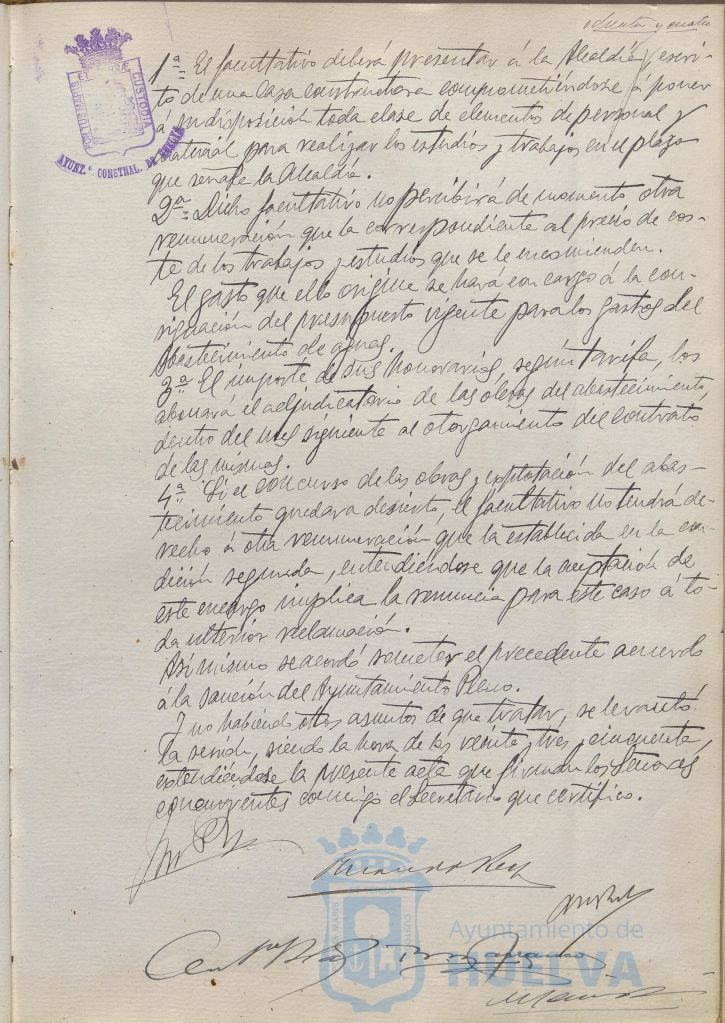 ochenta y cuatro
PORTUS MARIS ET TERRÆ CUSTODIA
AYUNT.º CONSTNAL. DE HUELVA
1ª = El facultativo deberá presentar á la Alcaldía, escri-
to de una Casa constructora comprometiéndose á poner
á su disposición toda clase de elementos de personal y
material para realizar los estudios y trabajos en el plazo
que señale la Alcaldía.
2ª = Dicho facultativo no percibirá de momento, otra
remuneración que la correspondiente al precio de cos-
te de los trabajos y estudios que se le encomienden.
El gasto que ello origine se hará con cargo á la con-
signación del presupuesto vigente para los gastos del
abastecimiento de aguas.
3ª = El importe de sus honorarios, según tarifa, los
abonará el adjudicatario de las obras del abastecimiento,
dentro del mes siguiente al otorgamiento del contrato
de las mismas.
4ª = Si el concurso de las obras y explotación del abas-
tecimiento quedara desierto, el facultativo no tendrá de-
recho á otra remuneración que la establecida en la con-
dición segunda, entendiéndose que la aceptación de
este encargo implica la renuncia para este caso á to-
da ulterior reclamación.
Así mismo se acordó someter el precedente acuerdo
á la sanción del Ayuntamiento Pleno.
Y no habiendo otros asuntos de que tratar, se levantó
la sesión, siendo la hora de las veinte y tres y cincuenta,
extendiéndose la presente acta que firman los Señores
concurrentes conmigo el Secretario que certifico.
Ayuntamiento de
HUELVA